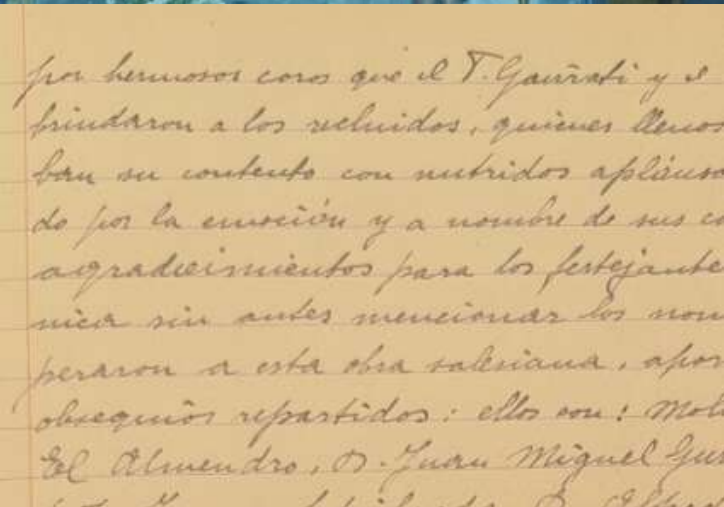 por hermosos coros que el T. Gaurrati y e
brindaron a los recluidos, quienes llenos
ban su contento con nutridos aplauso
do por la emoción y a nombre de sus co
agradecimientos para los festejante
nica sin antes mencionar los nom
peraron a esta obra salesiana, apor
obsequios repartidos: ellos son: Mol
El Almendro, D. Juan Miguel